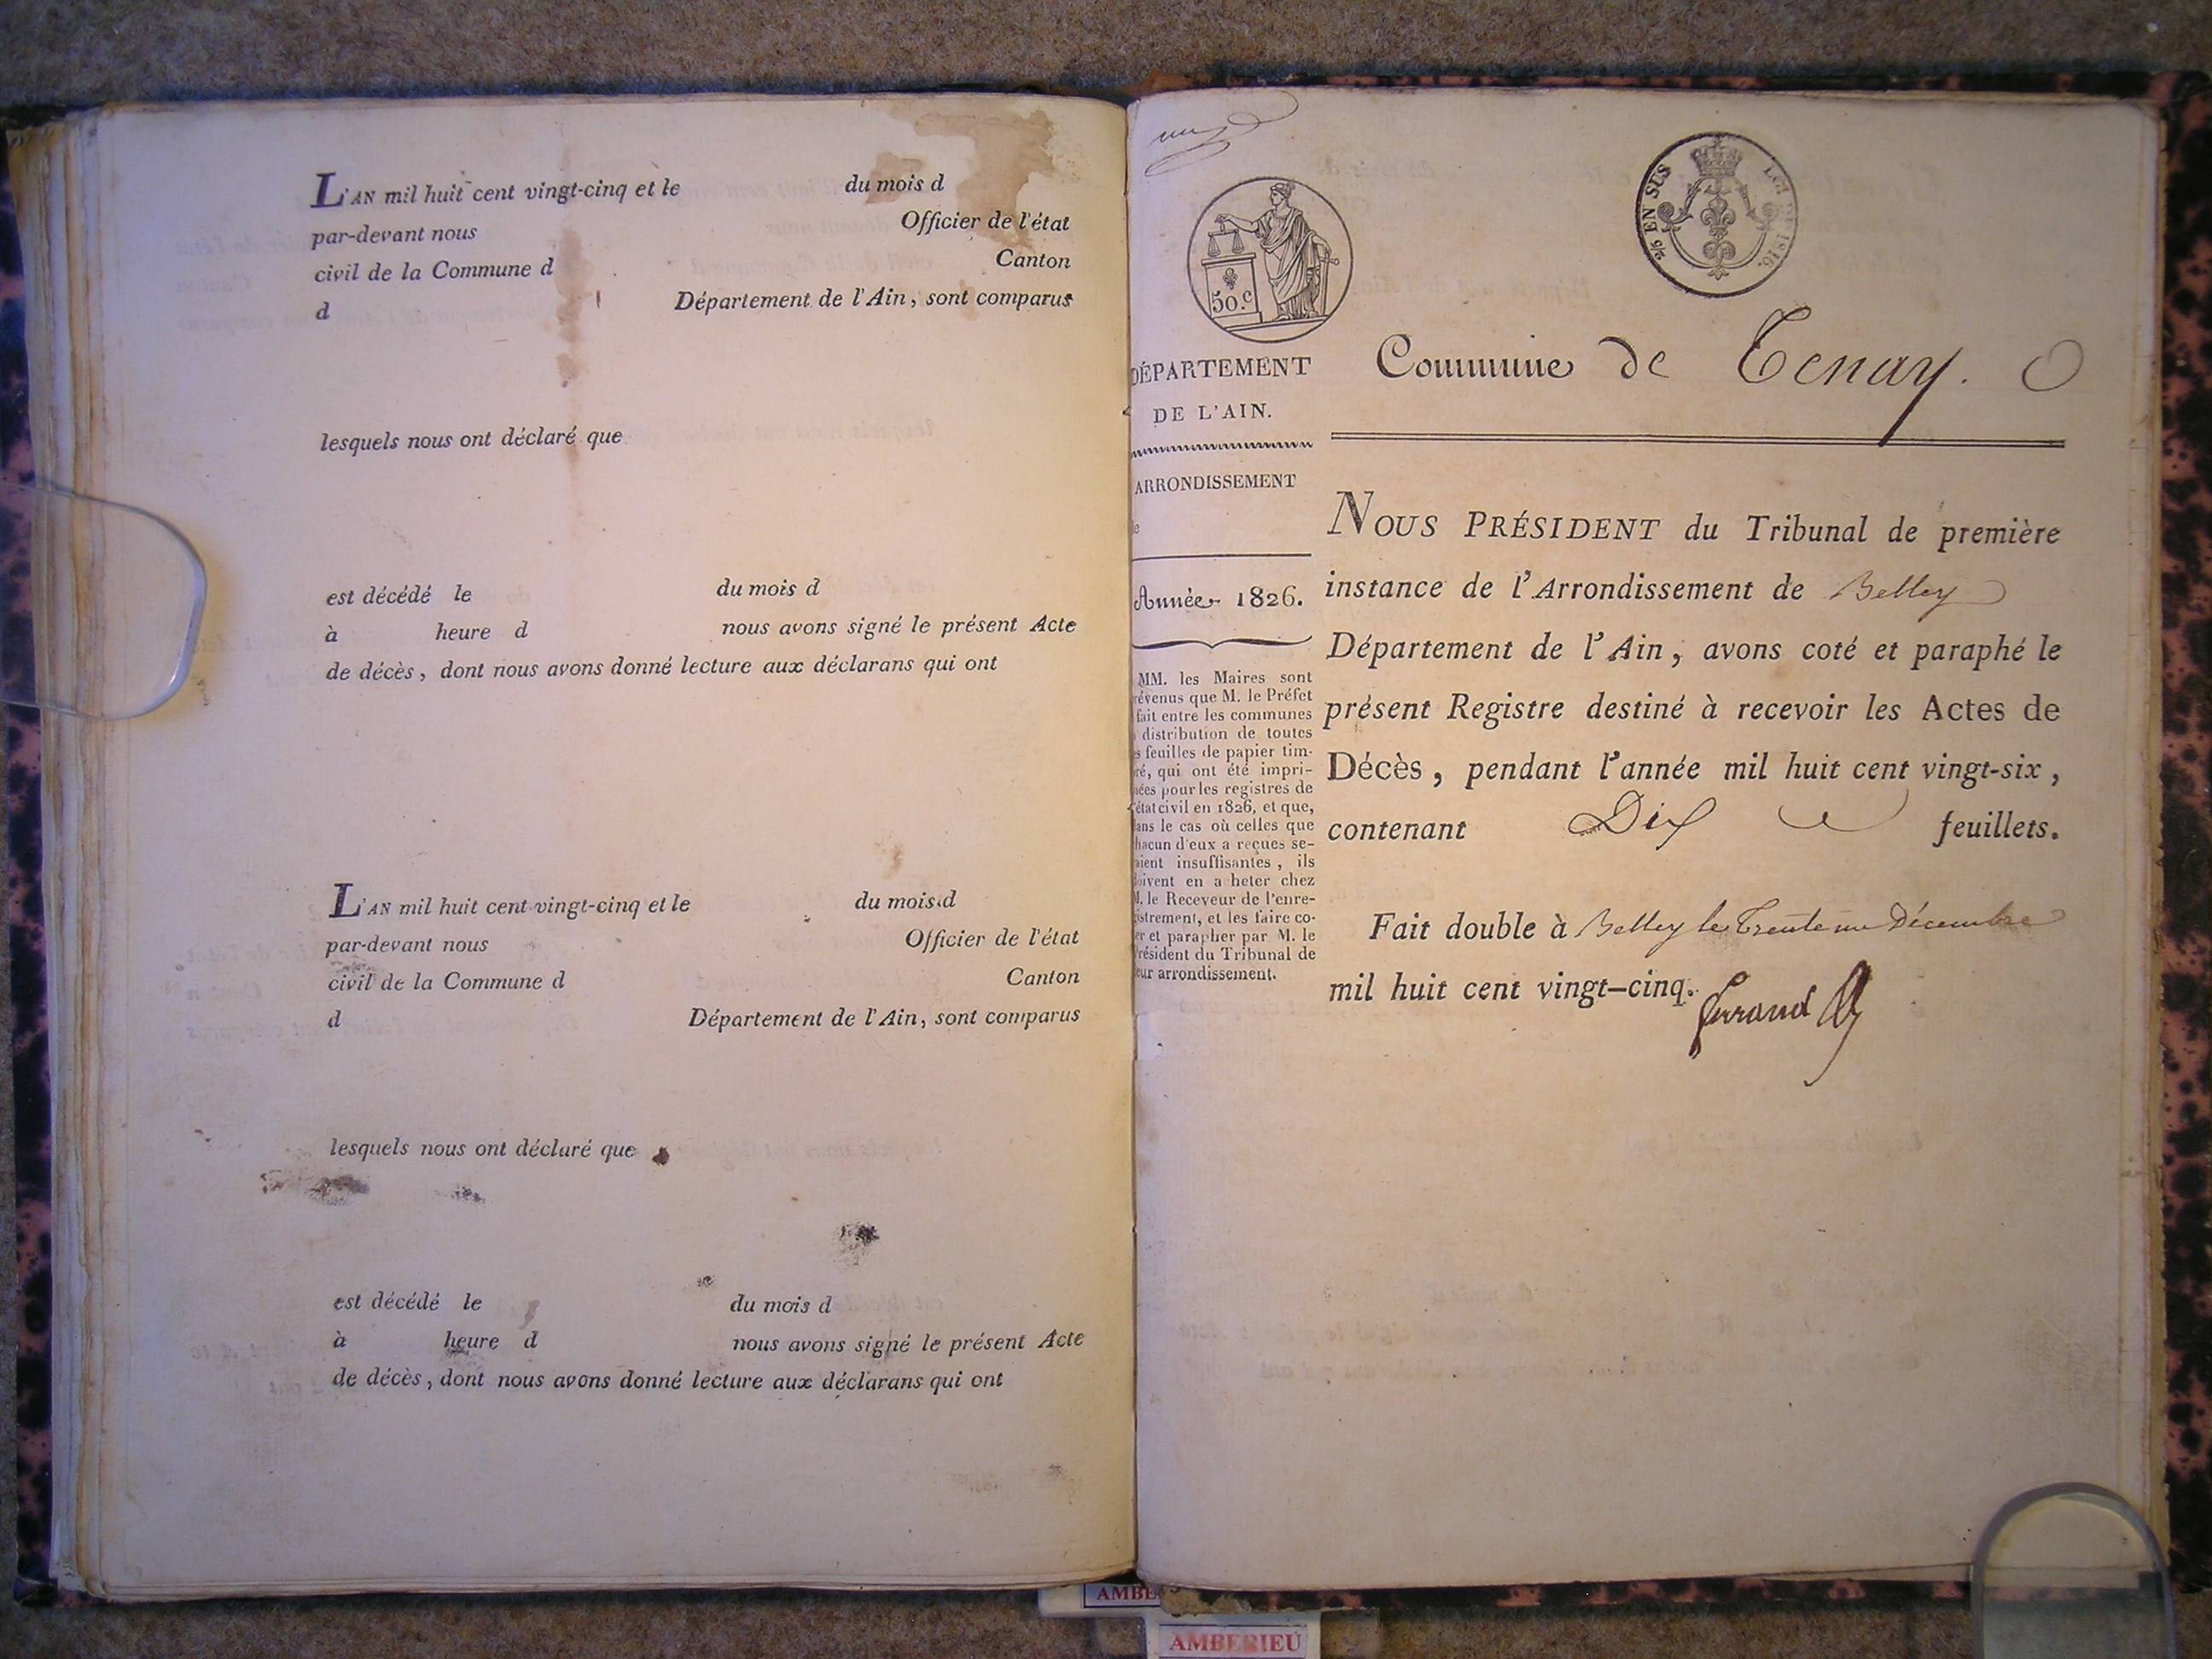 L'AN mil huit cent vingt-cinq et le du mois d
par-devant nous Officier de l'état
civil de la Commune d Canton
d Département de l'Ain, sont comparus
lesquels nous ont déclaré que
est décédé le du mois d
à heure d nous avons signé le présent Acte
de décès, dont nous avons donné lecture aux déclarans qui ont
L'AN mil huit cent vingt-cinq et le du mois d
par-devant nous Officier de l'état
civil de la Commune d Canton
d Département de l'Ain, sont comparus
lesquels nous ont déclaré que
est décédé le du mois d
à heure d nous avons signé le présent Acte
de décès, dont nous avons donné lecture aux déclarans qui ont
50.c
2/5 EN SUS LOI DE 1816.
DÉPARTEMENT
DE L'AIN.
ARRONDISSEMENT
Année 1826.
MM. les Maires sont
révenus que M. le Préfet
fait entre les communes
distribution de toutes
s feuilles de papier tim-
ré, qui ont été impri-
ées pour les registres de
'état civil en 1826, et que,
ans le cas où celles que
hacun d'eux a reçues se-
aient insuffisantes, ils
oivent en a heter chez
M. le Receveur de l'enre-
istrement, et les faire co-
er et parapher par M. le
Président du Tribunal de
eur arrondissement.
Commune de Tenay.
NOUS PRÉSIDENT du Tribunal de première
instance de l'Arrondissement de Belley
Département de l'Ain, avons coté et paraphé le
présent Registre destiné à recevoir les Actes de
Décès, pendant l'année mil huit cent vingt-six,
contenant Dix feuillets.
Fait double à Belley le Trente un Décembre
mil huit cent vingt-cinq.
AMBE
AMBERIEU